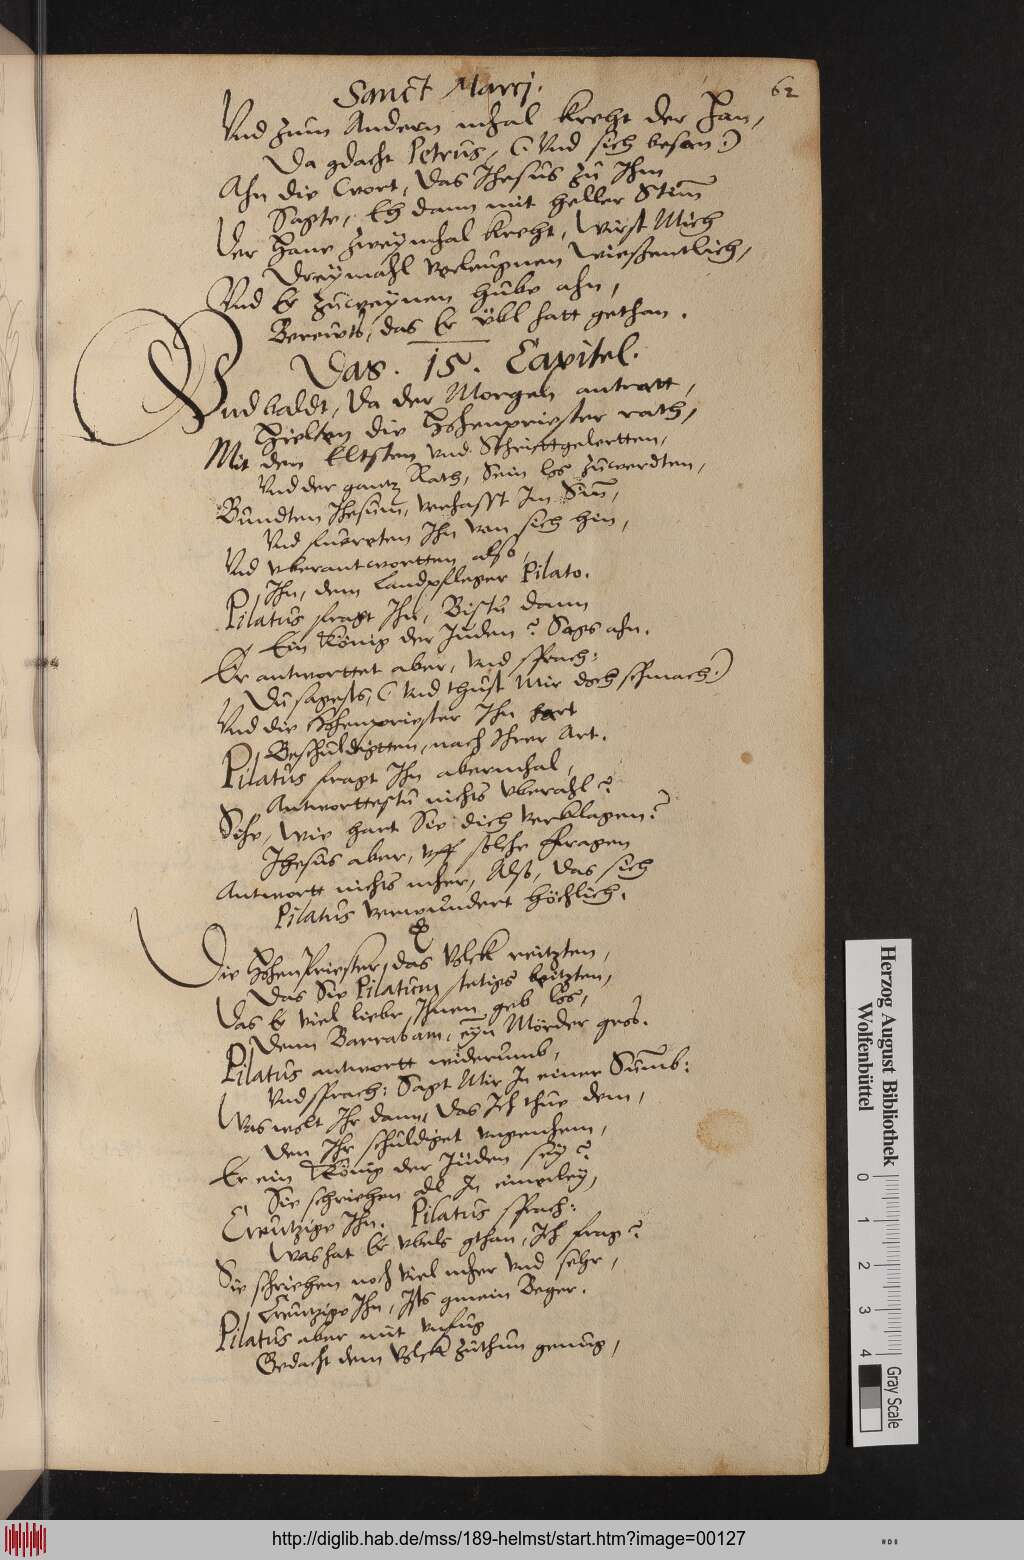 Sanct Marcj.
62
Vnd zum Andern mhal kreht der Han,
Da gdacht Petrus, (Vnd sich besan:)
Ahn die Wort, das Jhesus zu Ihm
Sagte, Eh dann mit heller Stim̄
Der Hane zweymhal kreht, Wirst Mich
Dreymahl verleugnen wießentlich,
Vnd Er zuweynen hube ahn,
Bereuts, das Er vbl hatt gethan.
Das. 15. Capitel.
Vnd baldt, Da der Morgen antratt,
Hielten die Hohenpriester rath,
Mit den Eltsten vnd Schrifftgelertten,
Vnd der gantz Rath, Sein los zuwerdten,
Bundten Jhesum, verhasst Im Sin̄,
Vnd fuereten Ihn von sich hin,
Vnd vberantwortten also,
Ihn, dem Landpfleger Pilato.
Pilatus fragt Ihn, Bistu dann
Ein König der Juden? Sags ahn.
Er antworttet aber, vnd sprach:
Du sagests, (Vnd thust Mir doch schmach:)
Vnd die Hohenpriester Ihn hart
Beschuldigtten, nach Ihrer Art.
Pilatus fragt Ihn abermhal,
Antworttestu nichts vberahl?
Sihe, Wie hart Sie dich verklagen?
Jhesus aber, vff solche fragen
Antwortt nichts mher, Also, das sich
Pilatus verwundert höchlich.
Die HohenPriester, das Volck reitzten,
Das Sie Pilatum stetigs beitzten,
Das Er viel lieber, Ihnen geb los,
Denn Barrabam, eyn Mörder gros.
Pilatus antwortt widerumb,
Vnd sprach: Sagt Mir In einer Sum̄b:
Was wolt Ihr dann, das Ich thue dem,
Den Ihr schuldiget vngenhem,
Er ein König der Jüden sey?
Sie schriehen al In einerley,
Creutzige Ihn. Pilatus sprach:
Was hat Er vbels gthan, Ich frag?
Sie schriehen noch viel mher vnd sehr,
Creutzige Ihn, Ists gmein Beger.
Pilatus aber mit vnfug
Gedacht dem Volck zuthun genug,
Herzog August Bibliothek
Wolfenbüttel
0 1 2 3 4
Gray Scale
http://diglib.hab.de/mss/189-helmst/start.htm?image=00127